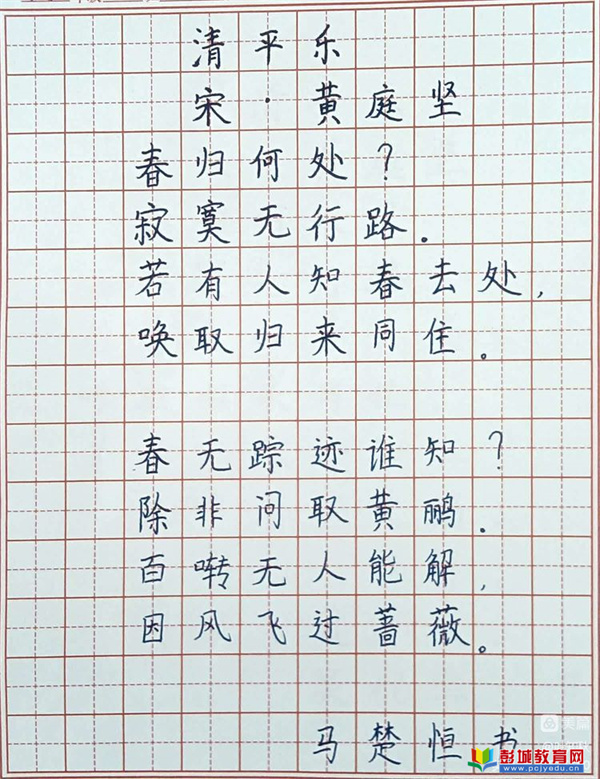 清平乐
宋·黄庭坚
春归何处?
寂寞无行路.
若有人知春去处,
唤取归来同住。
春无踪迹谁知?
除非问取黄鹂.
百啭无人能解,
因风飞过蔷薇。
马楚恒书
彭城教育网
www.pcjyedu.cn